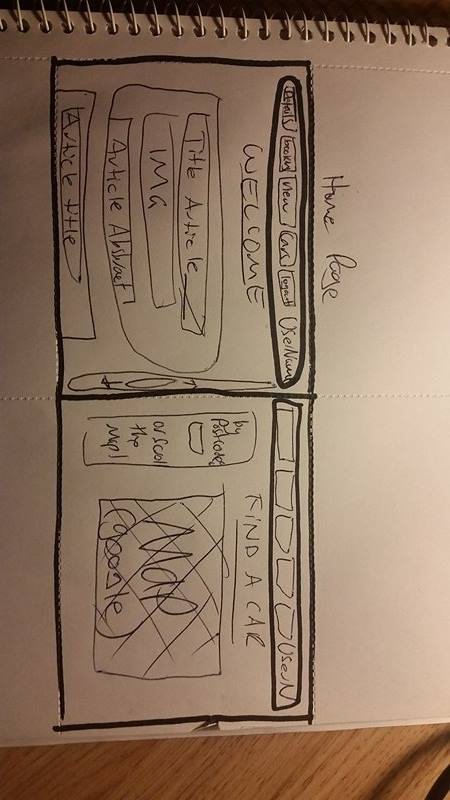 Home Page
Details
View
Cars
logout
WELCOME
Title Article
IMG
Article Abstract
Article title
UserN
FIND A CAR
by
Postcode
or scroll
the
Map!
Map
(google)